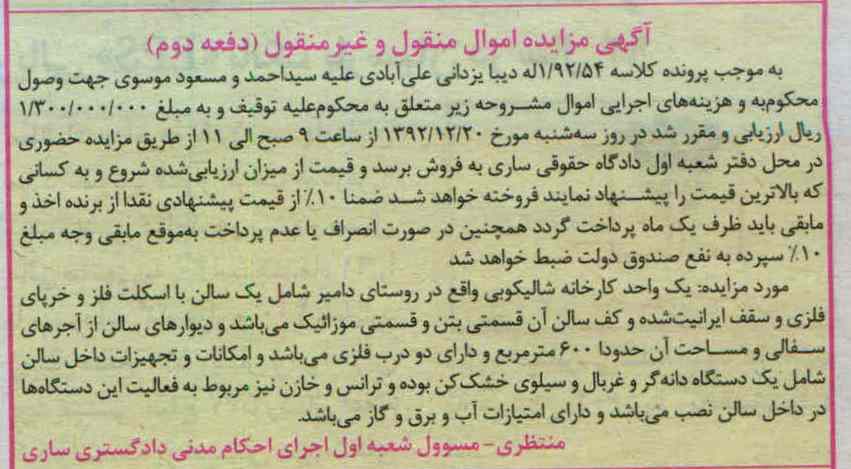 آگهی مزایده اموال منقول و غیرمنقول (دفعه دوم)
به موجب پرونده کلاسه ۱/۹۲/۵۴له دیبا یزدانی علی‌آبادی علیه سیداحمد و مسعود موسوی جهت وصول
محکوم‌به و هزینه‌های اجرایی اموال مشروحه زیر متعلق به محکوم‌علیه توقیف و به مبلغ ۱/۳۰۰/۰۰۰/۰۰۰
ریال ارزیابی و مقرر شد در روز سه‌شنبه مورخ ۱۳۹۲/۱۲/۲۰ از ساعت ۹ صبح الی ۱۱ از طریق مزایده حضوری
در محل دفتر شعبه اول دادگاه حقوقی ساری به فروش برسد و قیمت از میزان ارزیابی‌شده شروع و به کسانی
که بالاترین قیمت را پیشنهاد نمایند فروخته خواهد شد ضمنا ۱۰٪ از قیمت پیشنهادی نقدا از برنده اخذ و
مابقی باید ظرف یک ماه پرداخت گردد همچنین در صورت انصراف یا عدم پرداخت به‌موقع مابقی وجه مبلغ
۱۰٪ سپرده به نفع صندوق دولت ضبط خواهد شد
مورد مزایده: یک واحد کارخانه شالیکوبی واقع در روستای دامیر شامل یک سالن با اسکلت فلز و خرپای
فلزی و سقف ایرانیت‌شده و کف سالن آن قسمتی بتن و قسمتی موزائیک می‌باشد و دیوارهای سالن از آجرهای
سفالی و مساحت آن حدودا ۶۰۰ مترمربع و دارای دو درب فلزی می‌باشد و امکانات و تجهیزات داخل سالن
شامل یک دستگاه دانه‌گر و غربال و سیلوی خشک‌کن بوده و ترانس و خازن نیز مربوط به فعالیت این دستگاه‌ها
در داخل سالن نصب می‌باشد و دارای امتیازات آب و برق و گاز می‌باشد.
منتظری- مسوول شعبه اول اجرای احکام مدنی دادگستری ساری